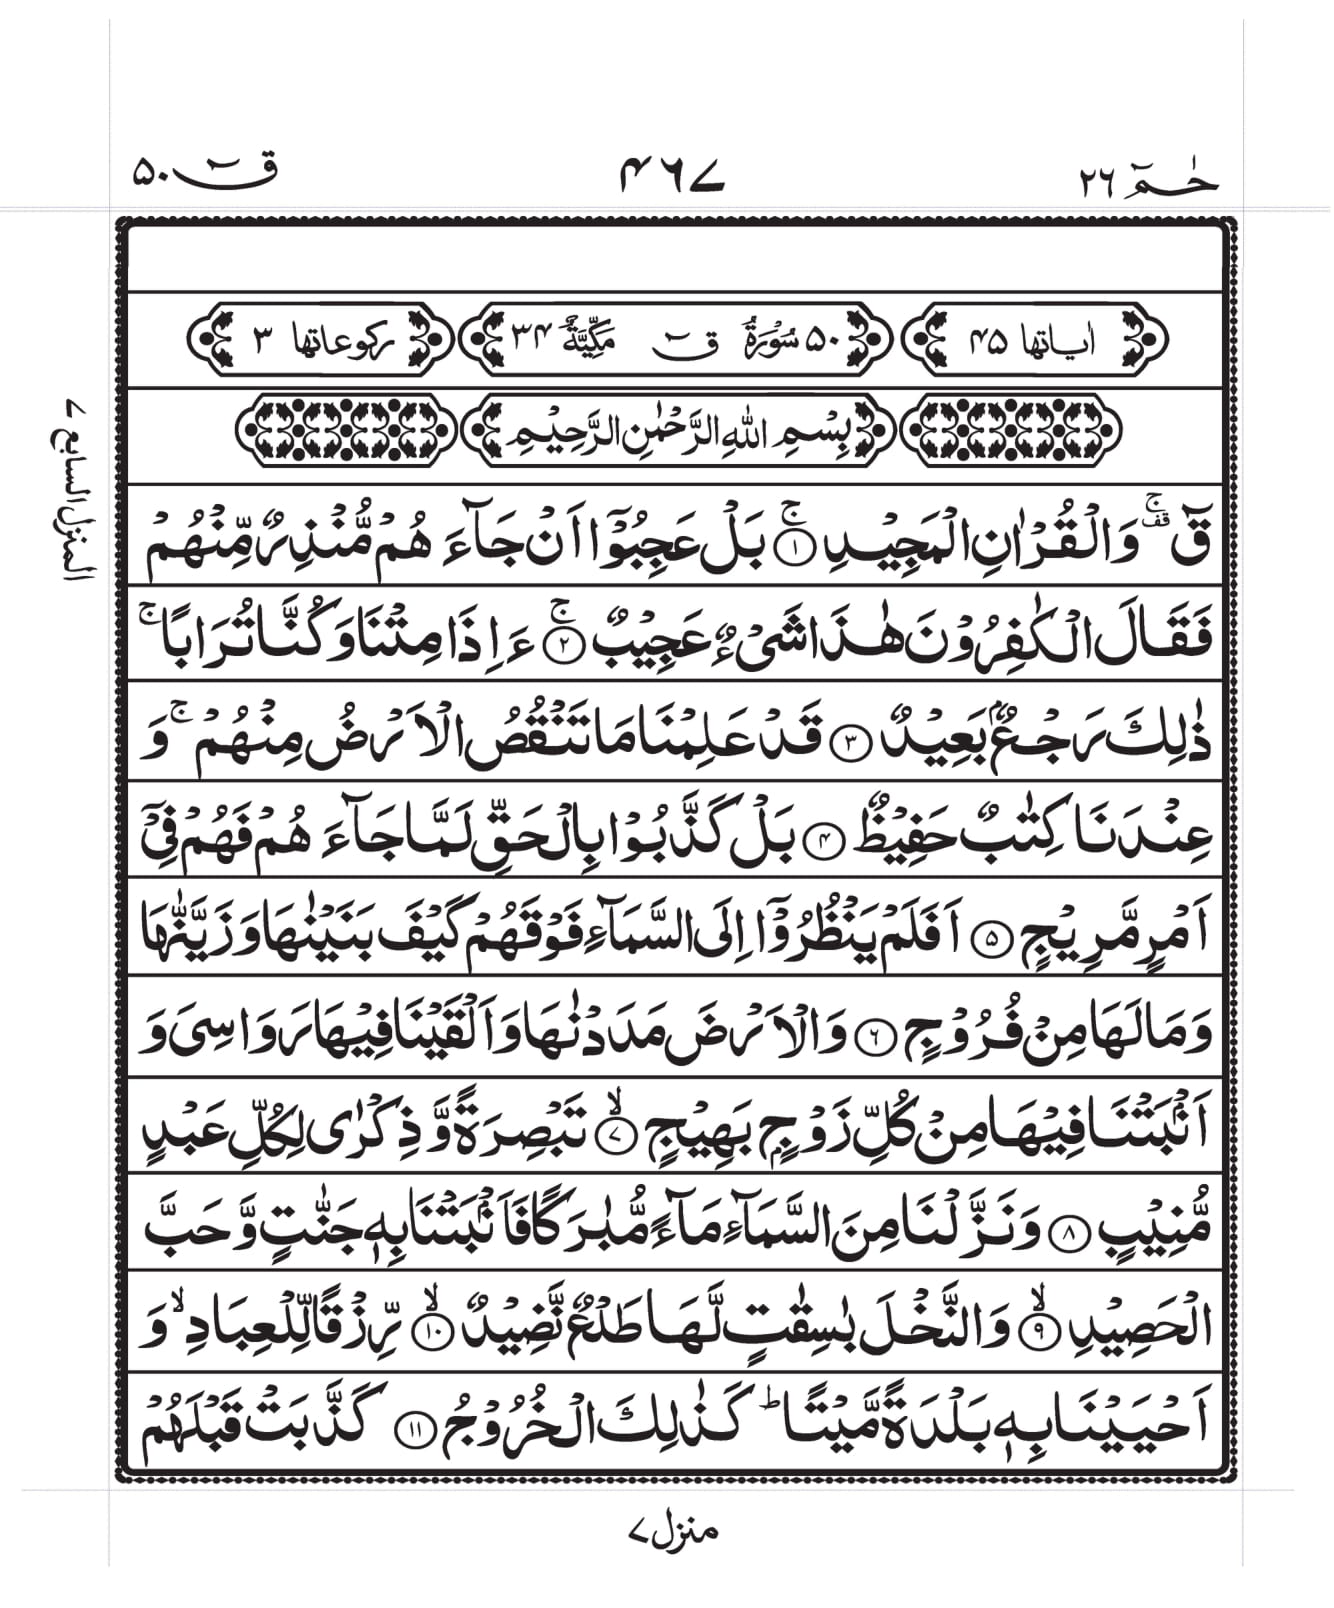 حٰـمٓ ٢٦
٤٦٧
قٓ ٥٠
اٰياتها ٤٥
٥٠ سُوۡرَةُ قٓ مَكِّيَّةٌ ٣٤
ركوعاتها ٣
بِسۡمِ اللهِ الرَّحۡمٰنِ الرَّحِيۡمِ
قٓ ۚ قف وَالۡقُرۡاٰنِ الۡمَجِيۡدِ ۚ ﴿١﴾ بَلۡ عَجِبُوۡۤا اَنۡ جَآءَ هُمۡ مُّنۡذِرٌ مِّنۡهُمۡ
فَقَالَ الۡكٰفِرُوۡنَ هٰذَا شَىۡءٌ عَجِيۡبٌ ۚ ﴿٢﴾ ءَاِذَا مِتۡنَا وَكُنَّا تُرَابًا ۚ
ذٰلِكَ رَجۡعٌۢ بَعِيۡدٌ ﴿٣﴾ قَدۡ عَلِمۡنَا مَا تَنۡقُصُ الۡاَرۡضُ مِنۡهُمۡ ۚ وَ
عِنۡدَنَا كِتٰبٌ حَفِيۡظٌ ﴿٤﴾ بَلۡ كَذَّبُوۡا بِالۡحَقِّ لَمَّا جَآءَ هُمۡ فَهُمۡ فِىۡۤ
اَمۡرٍ مَّرِيۡجٍ ﴿٥﴾ اَفَلَمۡ يَنۡظُرُوۡۤا اِلَى السَّمَآءِ فَوۡقَهُمۡ كَيۡفَ بَنَيۡنٰهَا وَزَيَّنّٰهَا
وَمَا لَهَا مِنۡ فُرُوۡجٍ ﴿٦﴾ وَالۡاَرۡضَ مَدَدۡنٰهَا وَاَلۡقَيۡنَا فِيۡهَا رَوَاسِىَ وَ
اَنۡۢبَتۡنَا فِيۡهَا مِنۡ كُلِّ زَوۡجٍۢ بَهِيۡجٍ ۙ ﴿٧﴾ تَبۡصِرَةً وَّذِكۡرٰى لِكُلِّ عَبۡدٍ
مُّنِيۡبٍ ﴿٨﴾ وَنَزَّلۡنَا مِنَ السَّمَآءِ مَآءً مُّبٰرَكًا فَاَنۡۢبَتۡنَا بِهٖ جَنّٰتٍ وَّحَبَّ
الۡحَصِيۡدِ ۙ ﴿٩﴾ وَالنَّخۡلَ بٰسِقٰتٍ لَّهَا طَلۡعٌ نَّضِيۡدٌ ۙ ﴿١٠﴾ رِّزۡقًا لِّلۡعِبَادِ ۙ وَ
اَحۡيَيۡنَا بِهٖ بَلۡدَةً مَّيۡتًا ؕ كَذٰلِكَ الۡخُرُوۡجُ ﴿١١﴾ كَذَّبَتۡ قَبۡلَهُمۡ
المنزل السابع ٧
منزل ٧